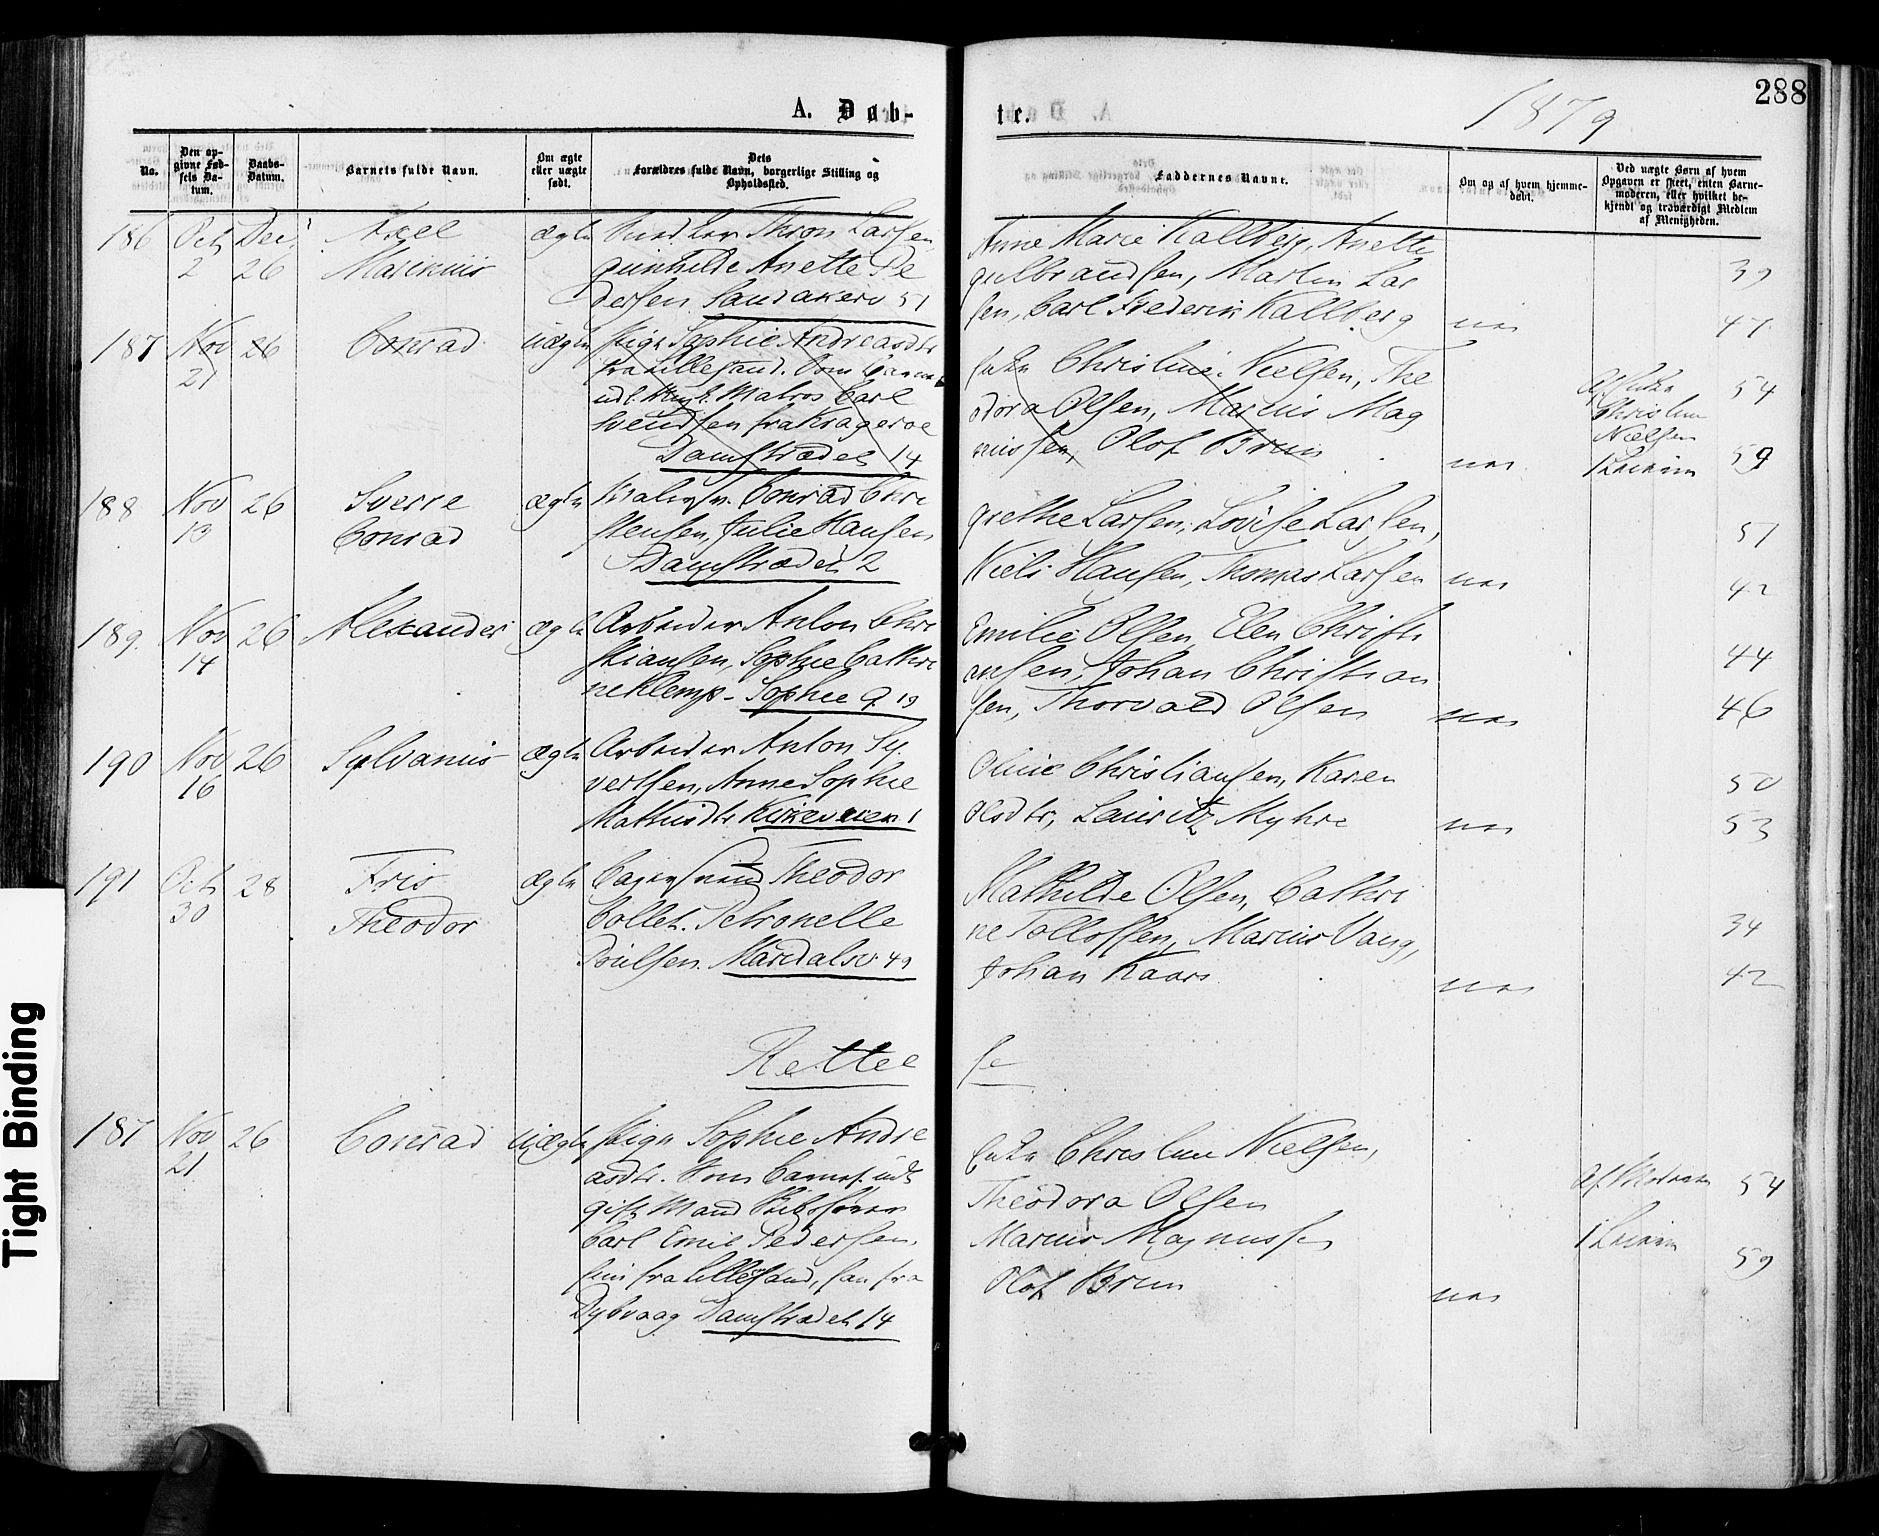 288
1879
A. Døb-
te.
No.
Den op-
givne Fød-
sels Da-
tum.
Daabs-
Datum.
Barnets fulde Navn.
Om ægte
eller uægte
født.
Dets
Forældres fulde Navn, borgerlige Stilling og
Opholdssted.
Faddernes Navne.
Om og af hvem hjemme-
døbt.
Ved uægte Børn af hvem
Opgaven er skeet, enten Barne-
moderen, eller hvilket be-
kjendt og troværdigt Medlem
af Menigheden.
186 Oct Dec Axel ægte Thron Larsen
2 26 Marinius gunhilde Anette Pe
dersen Sandakerv 51
Anne Marie Kallberg, Anette
gulbrandsen, Martin Lar 39
sen, Carl Frederik Kallberg nas 47
187 Nov 26 Conrad uægte Pige Sophie Andreasdtr
21 fra Lillesand. Som Barnef
Matros Carl
Svendsen fra Kragerøe
Damstrædet 14
Enke Christine Nielsen, The
odora Olsen, Marius Mag
nussen, Olof Brun nas
Af Enke 54
Christine
Nielsen
59
188 Nov 26 Sverre ægte Conrad Chri
13 Conrad stensen, Julie Hansen
Damstrædet 2
grethe Larsen, Lovise Larsen, 51
Niels Hansen, Thomas Larsen nas 42
189. Nov 26 Alexander ægte Arbeider Anton Chri
14 stiansen, Sophie Cathri
ne Klemp - Sophie g. 19
Emilie Olsen, Elen Christi
ansen, Johan Christian 44
sen, Thorvald Olsen nas 46
190 Nov 26 Sylvanus ægte Arbeider Anton Sy.
16 vertsen, Anne Sophie
Mathisdtr Kirkeveien 1
Oline Christiansen, Karen 50
Olsdtr, Lauritz Myhre nas 53
191 Oct 28 Fris ægte Theodor
30 Theodor Collet. Petronelle
Poulsen. Maridalsv. 49
Mathilde Olsen, Cathri
ne Tollofsen, Marius Vang, 34
Johan Kaars nas 42
Rettel
se
187 Nov 26 Conrad uægte Pige Sophie Andre
21 asdtr. Som Barnef. udl
gift Mand Skibsfører
Carl Emil Pedersen.
hun fra Lillesand, han fra
Dybvaag Damstrædet 14
Enke Christine Nielsen,
Theodora Olsen
Marius Magnussen
Olof Brun nas
Af Moderen 54
59
Tight Binding